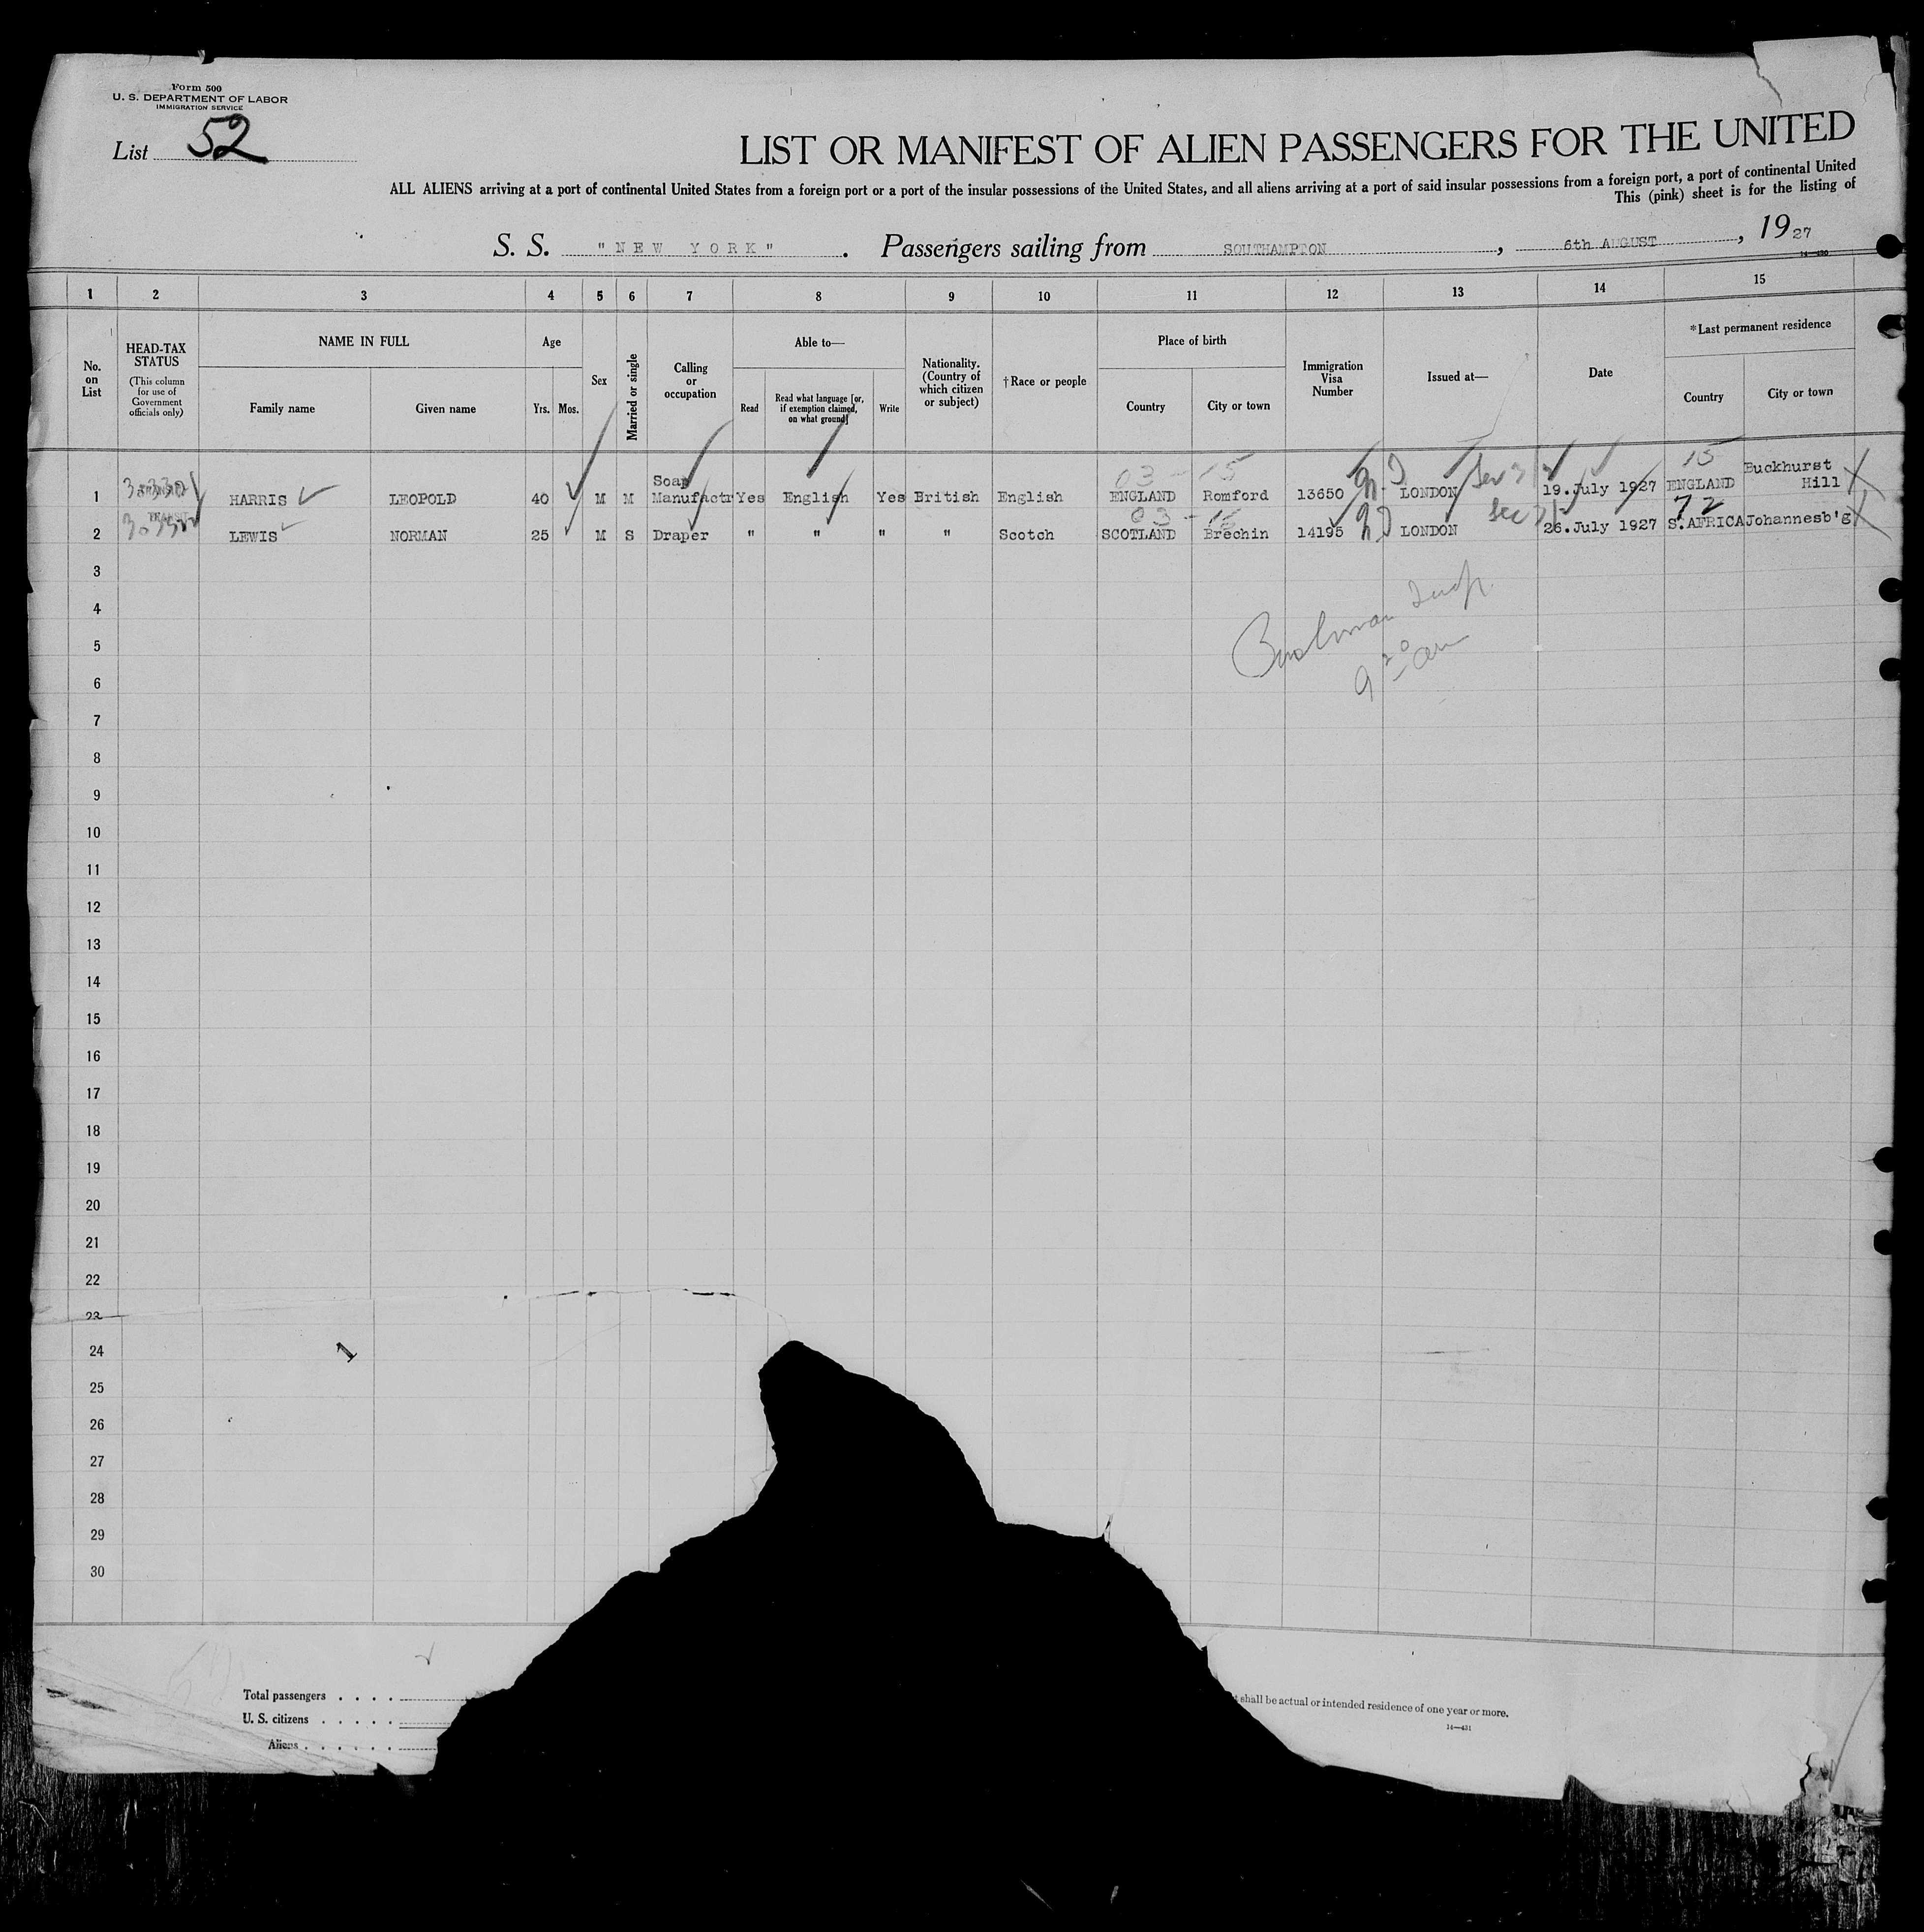 Form 500
U. S. DEPARTMENT OF LABOR
IMMIGRATION SERVICE
List 52
LIST OR MANIFEST OF ALIEN PASSENGERS FOR THE UNITED
ALL ALIENS arriving at a port of continental United States from a foreign port or a port of the insular possessions of the United States, and all aliens arriving at a port of said insular possessions from a foreign port, a port of continental United
This (pink) sheet is for the listing of
S. S. "NEW YORK". Passengers sailing from SOUTHAMPTON, 6th AUGUST, 1927
14—430
1 2 3 4 5 6 7 8 9 10 11 12 13 14 15
No. on List
HEAD-TAX STATUS
(This column for use of Government officials only)
NAME IN FULL
Family name Given name
Age
Yrs. Mos.
Sex
Married or single
Calling or occupation
Able to—
Read
Read what language [or, if exemption claimed, on what ground]
Write
Nationality. (Country of which citizen or subject)
†Race or people
Place of birth
Country City or town
Immigration Visa Number
Issued at—
Date
*Last permanent residence
Country City or town
03 - 15 15
1 HARRIS LEOPOLD 40 M M Soap Manufactr Yes English Yes British English ENGLAND Romford 13650 LONDON 19.July 1927 ENGLAND Buckhurst Hill
TRANSIT
03 - 16 72
2 LEWIS NORMAN 25 M S Draper " " " " Scotch SCOTLAND Brechin 14195 LONDON 26.July 1927 S.AFRICA Johannesb'g
3
4
5
6
7
8
9
10
11
12
13
14
15
16
17
18
19
20
21
22
23
24
25
26
27
28
29
30
1
Total passengers . . . .
U. S. citizens . . . . .
Aliens . . . . . .
shall be actual or intended residence of one year or more.
14—431